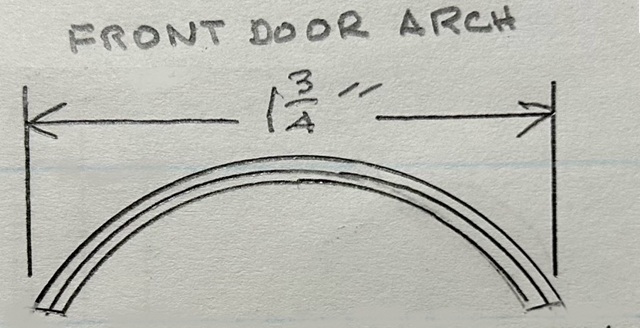 FRONT DOOR ARCH
1 3/4"